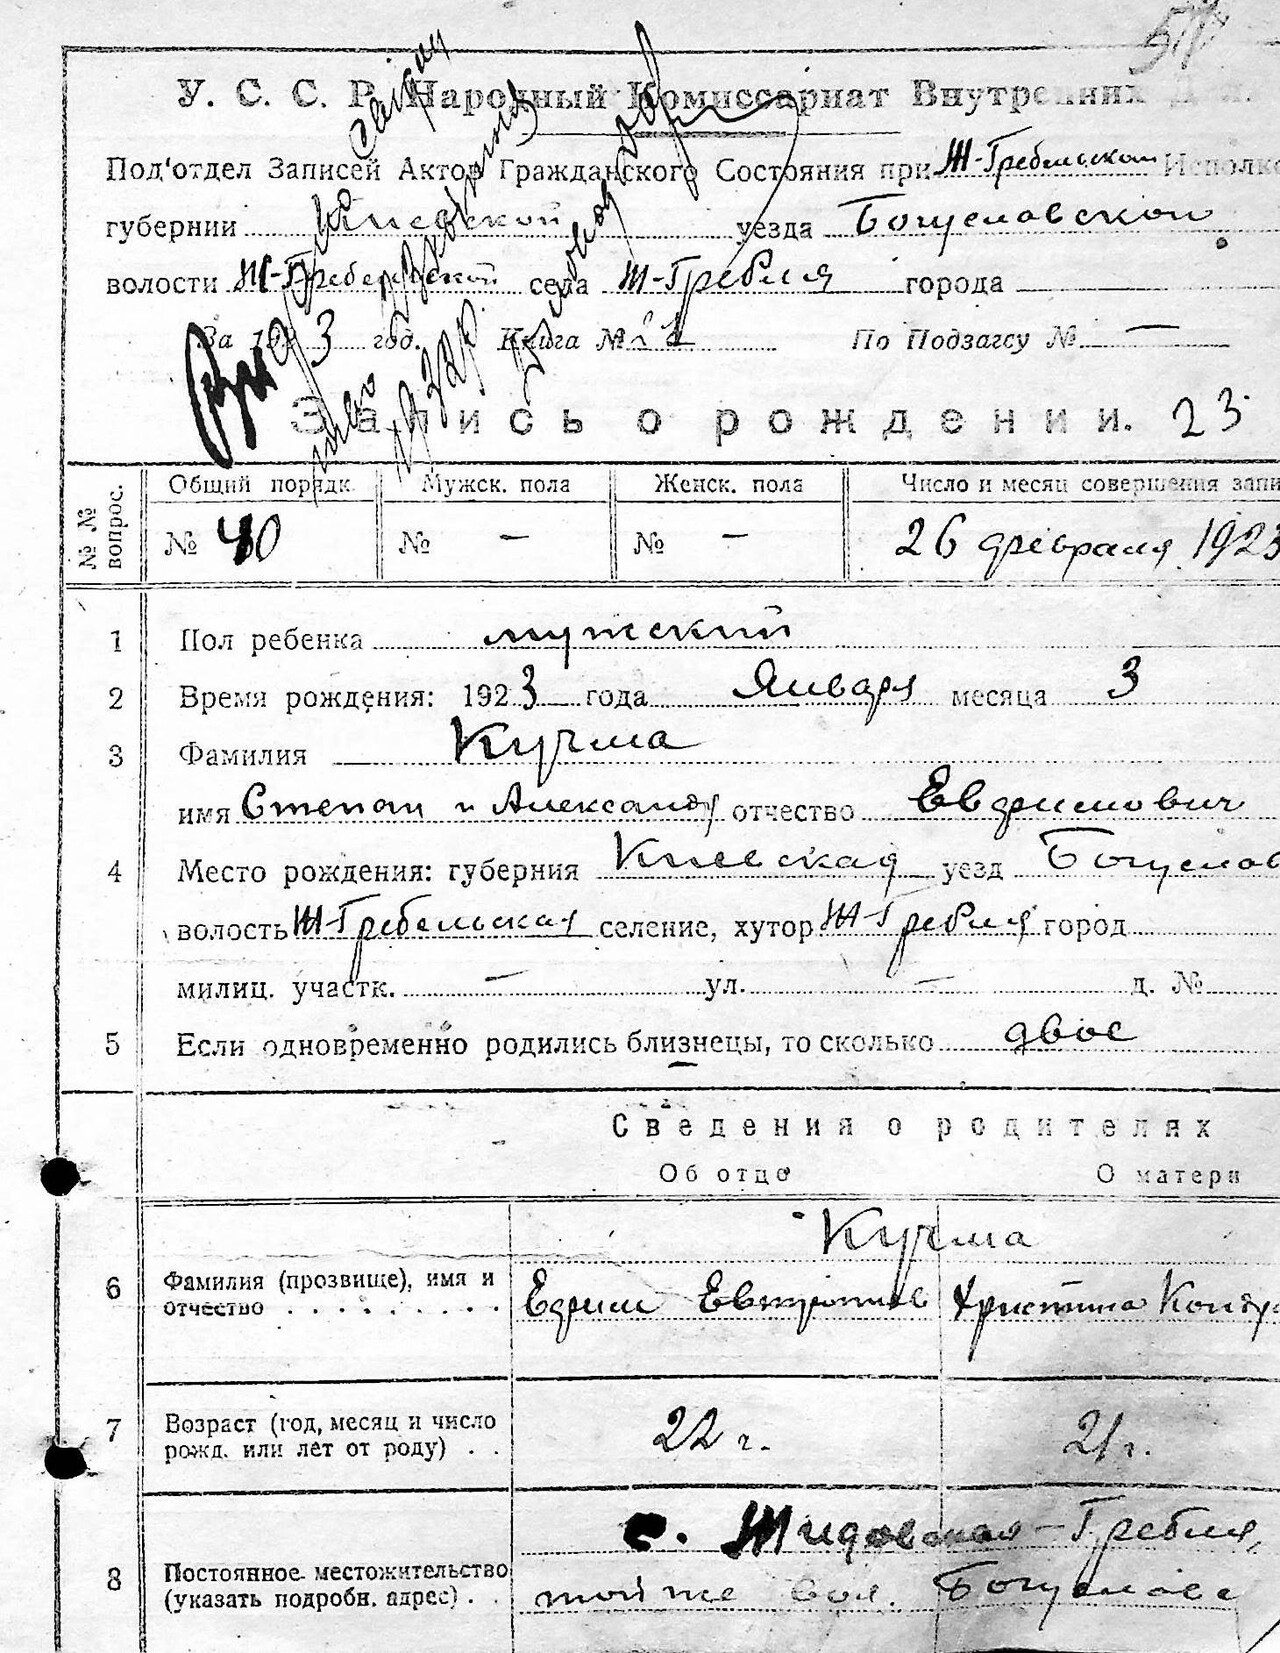 У. С. С. Р. Народный Комиссариат Внутренних
Под'отдел Записей Актов Гражданского Состояния при Ж-Гребельском Исполко
губернии Киевской уезда Богуславской
волости Ж-Гребельской села Ж-Гребля города
За 1923 год. Книга № По Подзагсу № —
Запись о рождении. 23
№№ вопрос. Общий порядк. Мужск. пола Женск. пола Число и месяц совершения запи
№ 40 № — № — 26 февраля 1923
1 Пол ребенка мужский
2 Время рождения: 1923 года Января месяца 3
3 Фамилия Кучма
имя Степан и Александр отчество Евфимович
4 Место рождения: губерния Киевская уезд Богуслав
волость Ж-Гребельская селение, хутор Ж-Гребля город
милиц. участк. — ул. — д. №
5 Если одновременно родились близнецы, то сколько двое
Сведения о родителях
Об отце О матери
Кучма
6 Фамилия (прозвище), имя и
отчество . . . . . . . . . Ефим Христина
7 Возраст (год, месяц и число
рожд. или лет от роду) . . 22 г. 21 г.
с. Жидовская-Гребля,
8 Постоянное местожительство
(указать подробн. адрес) . . той же вол. Богуславс